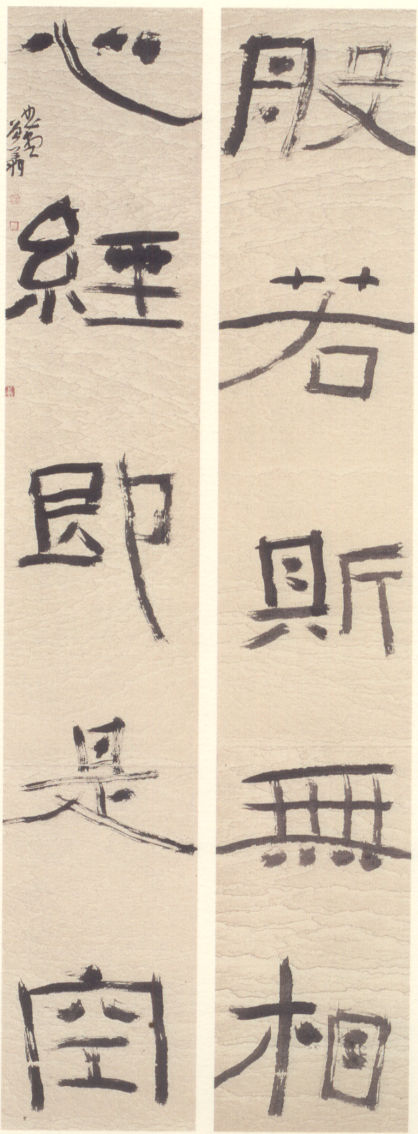 般若斯無相
心經即是空